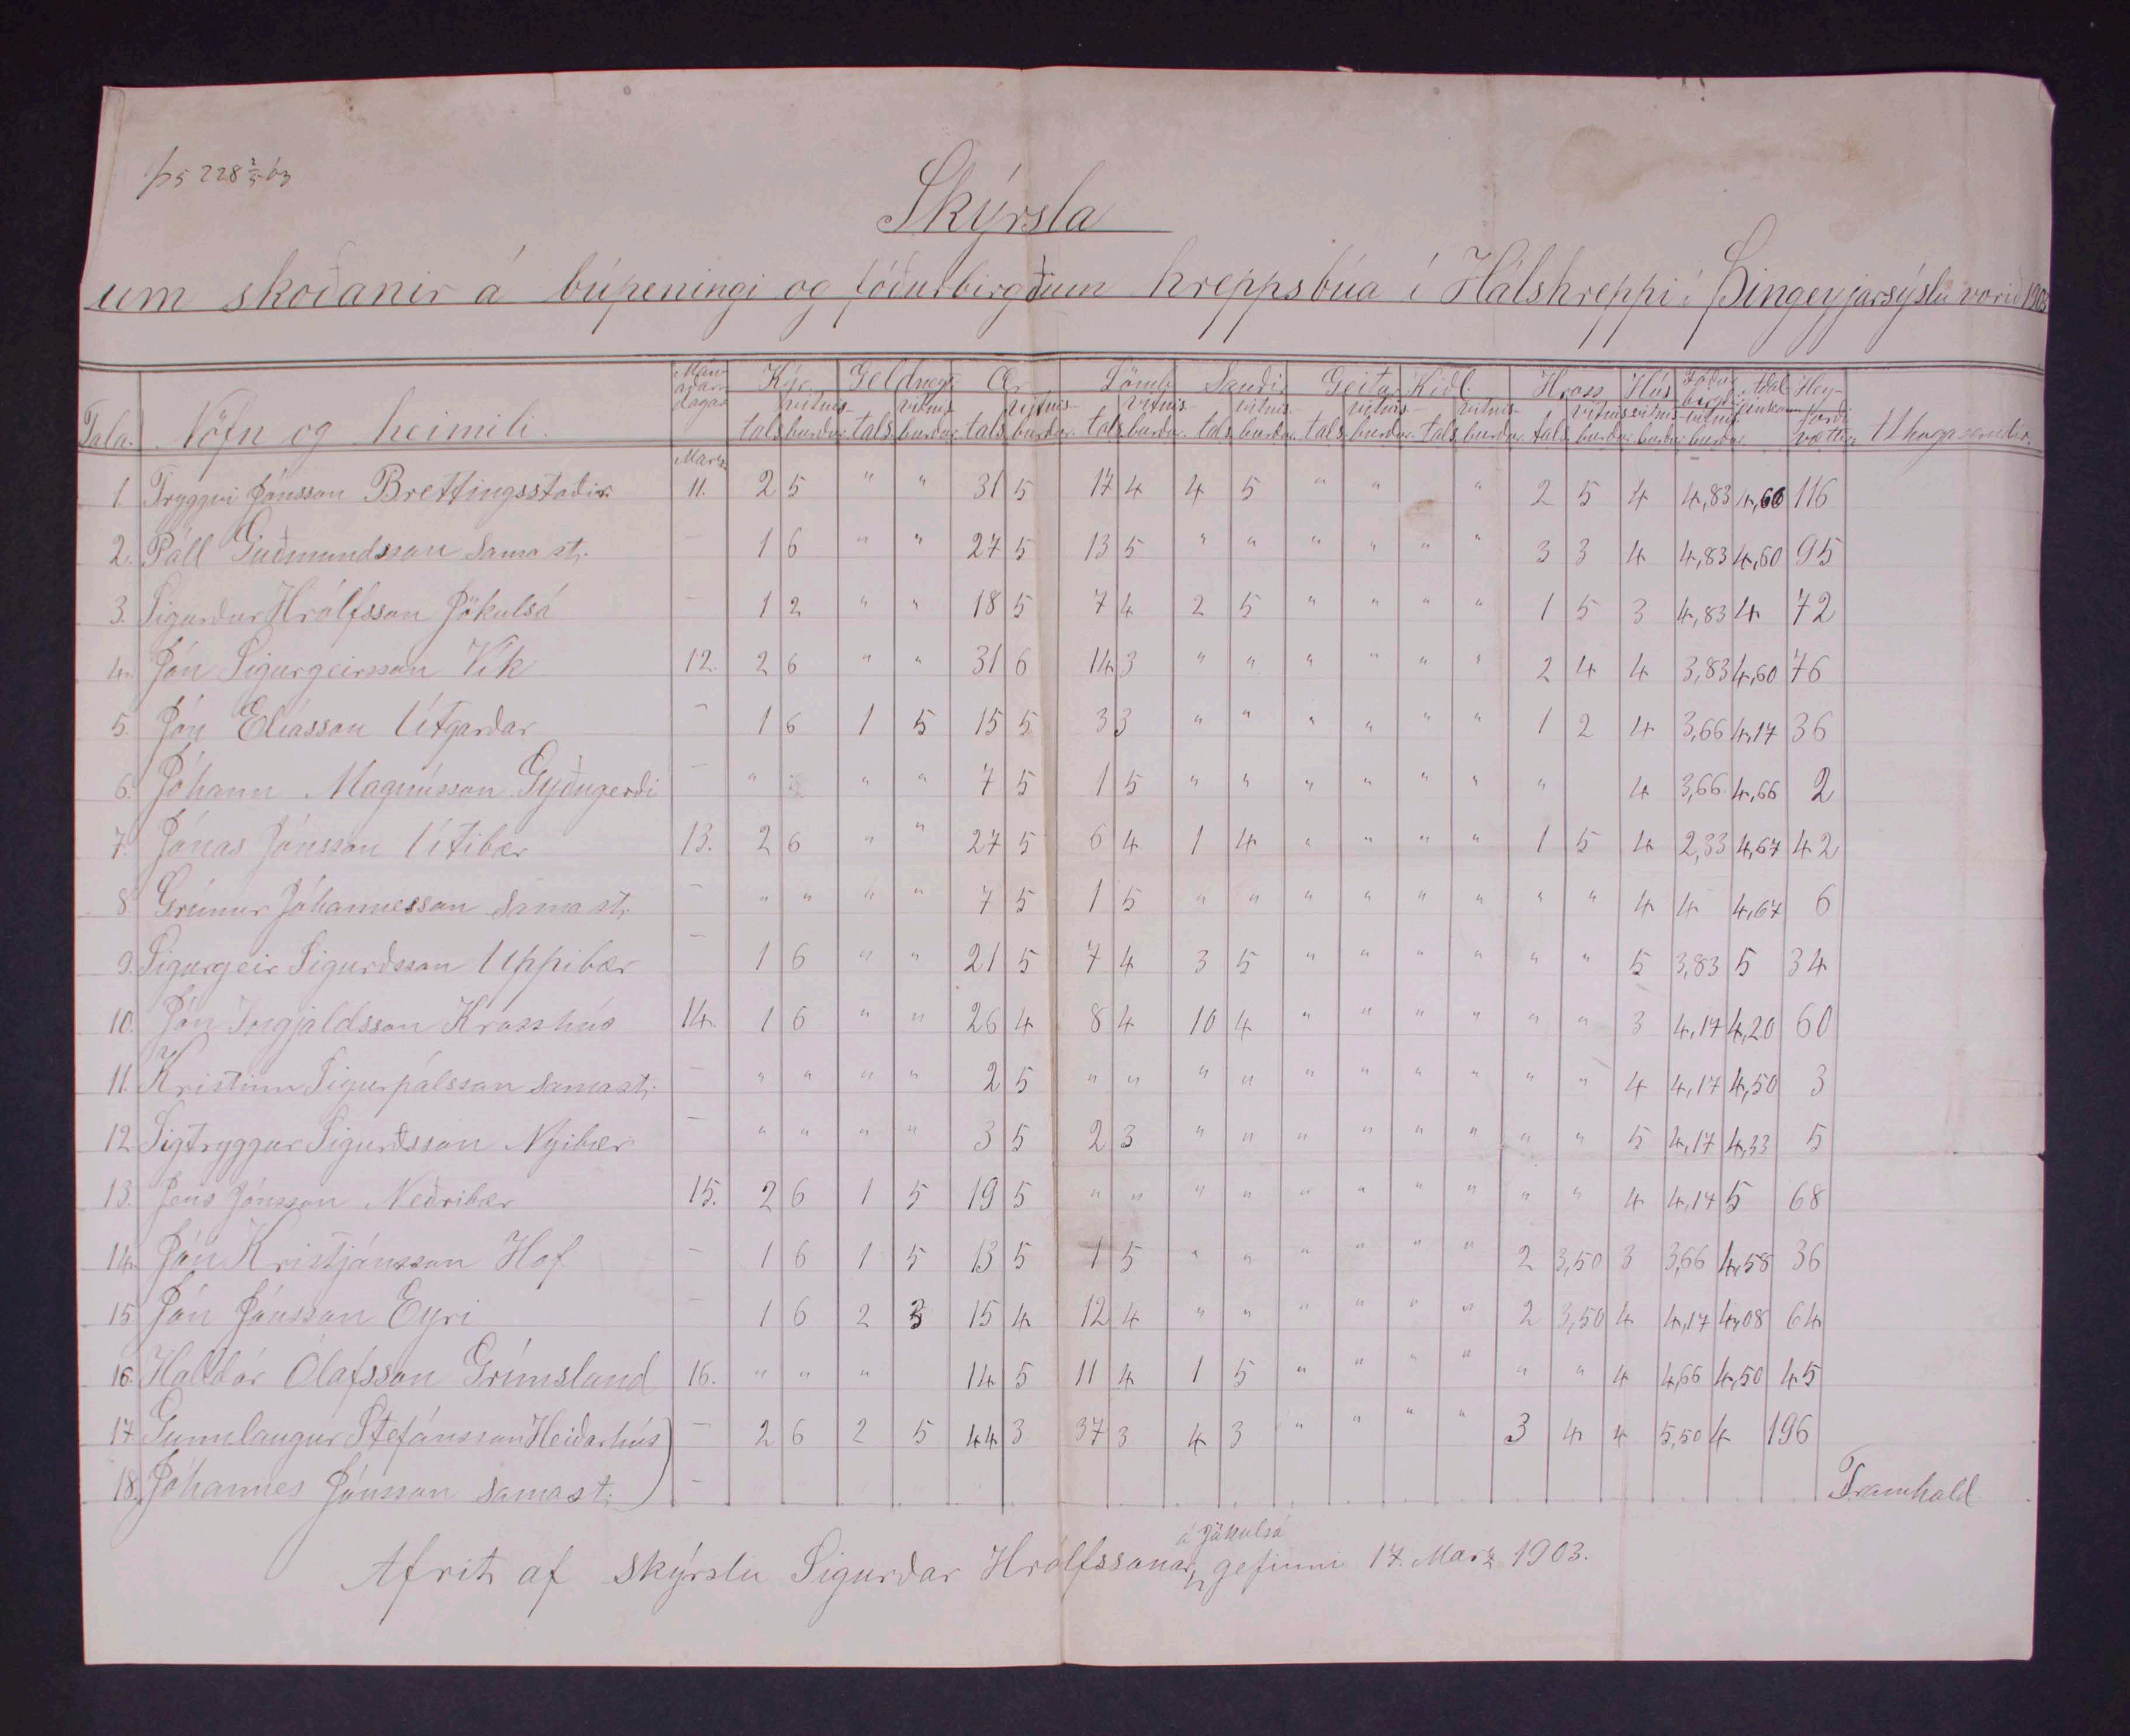 Skýrsla
um skoðanir á búpeningi og fóðurbirgðum hreppsbúa í Hálshreppi í Þingeyjarsýslu vorið 1903
Tala. Nöfn og heimili. Mánaðardagar Kýr Geldneyti Ær Lömb Sauðir Geitur Kiðl. Hross Hús Aðaleinkunn Heyforði vættir Athugasemdir.
tals vitnisburður tals vitnisburður tals vitnisburður tals vitnisburður tals vitnisburður tals vitnisburður tals vitnisburður tals vitnisburður vitnisburður vitnisburður
Marz
1. Tryggvi Jónsson Brettingsstaðir 11. 2 5 " " 31 5 17 4 4 5 " " " 2 5 4 4,83 4,60 116
2. Páll Guðmundsson sama st. – 1 6 " " 27 5 13 5 " " " " " " 3 3 4 4,83 4,60 95
3. Sigurður Hrólfsson Jökulsá – 1 2 " " 18 5 7 4 2 5 " " " " 1 5 3 4,83 4 72
4. Jón Sigurgeirsson Vík 12. 2 6 " " 31 6 14 3 " " " " " " 2 4 4 3,83 4,60 76
5. Jón Elíasson Útgarðar – 1 6 1 5 15 5 3 3 " " " " " " 1 2 4 3,66 4,17 36
6. Jóhann Magnússon Gyðugerði – " " " 7 5 1 5 " " " " " " " 4 3,66 4,66 2
7. Jónas Jónsson Útibær 13. 2 6 " " 27 5 6 4 1 4 " " " " 1 5 4 2,33 4,67 42
8. Grímur Jóhannesson sama st. – " " " " 7 5 1 5 " " " " " " " " 4 4 4,67 6
9. Sigurgeir Sigurðsson Uppibær – 1 6 " " 21 5 7 4 3 5 " " " " " " 5 3,83 5 34
10. Jón Ingjaldsson Krosshús 14. 1 6 " " 26 4 8 4 10 4 " " " " " " 3 4,17 4,20 60
11. Kristinn Sigurpálsson sama st. – " " " " 2 5 " " " " " " " " " " 4 4,17 4,50 3
12 Sigtryggur Sigurðsson Nýibær – " " " " 3 5 2 3 " " " " " " " " 5 4,17 4,33 5
13. Jens Jónsson Neðribær 15. 2 6 1 5 19 5 " " " " " " " " " " 4 4,17 5 68
14. Jón Kristjánsson Hof – 1 6 1 5 13 5 1 5 " " " " " " 2 3,50 3 3,66 4,58 36
15. Jón Jónsson Eyri – 1 6 2 3 15 4 12 4 " " " " " " 2 3,50 4 4,17 4,08 64
16. Halldór Ólafsson Grímsland 16. " " " 14 5 11 4 1 5 " " " " " " 4 4,66 4,50 45
17 Gunnlaugur Stefánsson Heiðarhús – 2 6 2 5 44 3 37 3 4 3 " " " " 3 4 4 5,50 4 196
18. Jóhannes Jónsson sama st. –
Framhald
Afrit af skýrslu Sigurðar Hrólfssonar á Jökulsá gefinni 17. Marz 1903.